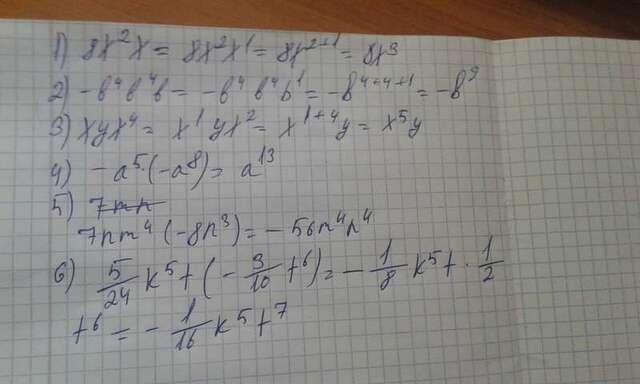 1) 8x²x = 8x²x¹ = 8x²⁺¹ = 8x³
2) -b⁴b⁴b = -b⁴b⁴b¹ = -b⁴⁺⁴⁺¹ = -b⁹
3) xyx⁴ = x¹yx² = x¹⁺⁴y = x⁵y
4) -a⁵·(-a⁸) = a¹³
5) 7mn
7nm⁴(-8n³) = -56m⁴n⁴
6) 5/24 k⁵t(-3/10 t⁶) = -1/8 k⁵t · 1/2
t⁶ = -1/16 k⁵t⁷